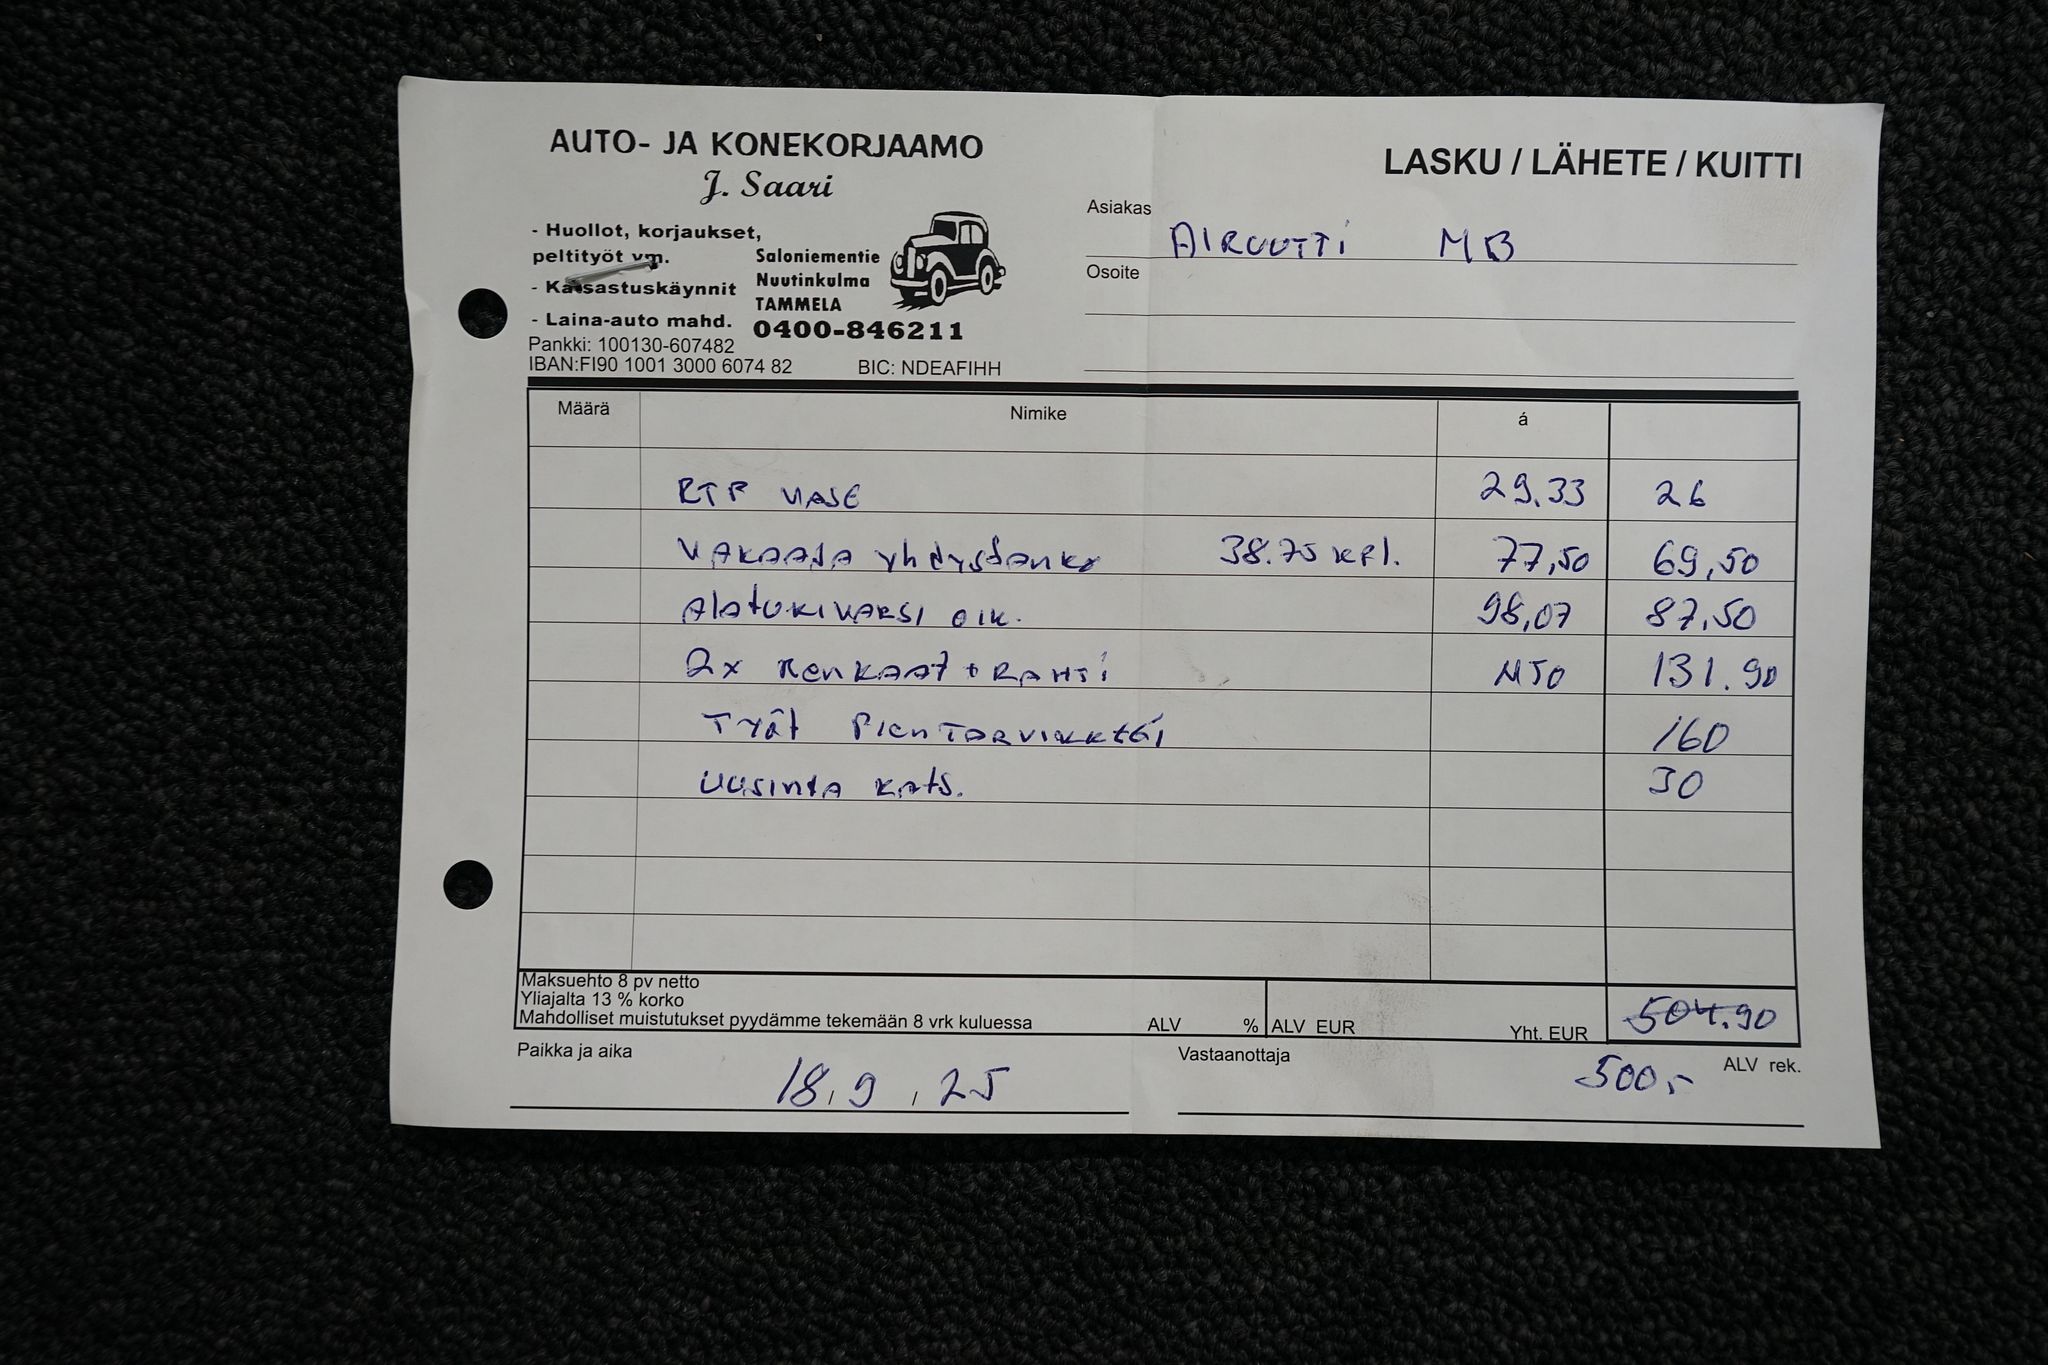 AUTO- JA KONEKORJAAMO
J. Saari
- Huollot, korjaukset,
peltityöt ym.
- Katsastuskäynnit
- Laina-auto mahd.
Saloniementie
Nuutinkulma
TAMMELA
0400-846211
Pankki: 100130-607482
IBAN:FI90 1001 3000 6074 82 BIC: NDEAFIHH
LASKU / LÄHETE / KUITTI
Asiakas
AIRUUTTI MB
Osoite
Määrä Nimike á
RTP VASE 29.33 26
VAKAAJA yhdystanko 38.75 KPl. 77,50 69,50
AlatUKIVARSI OIK. 98,07 87,50
2x RenKAAT + RAHTI NTO 131.90
TYÖt PIENTARVIKKEEt 160
UUSINTA KATS. 30
Maksuehto 8 pv netto
Yliajalta 13 % korko
Mahdolliset muistutukset pyydämme tekemään 8 vrk kuluessa ALV % ALV EUR Yht. EUR 504.90
Paikka ja aika 18.9.25
Vastaanottaja 500,- ALV rek.